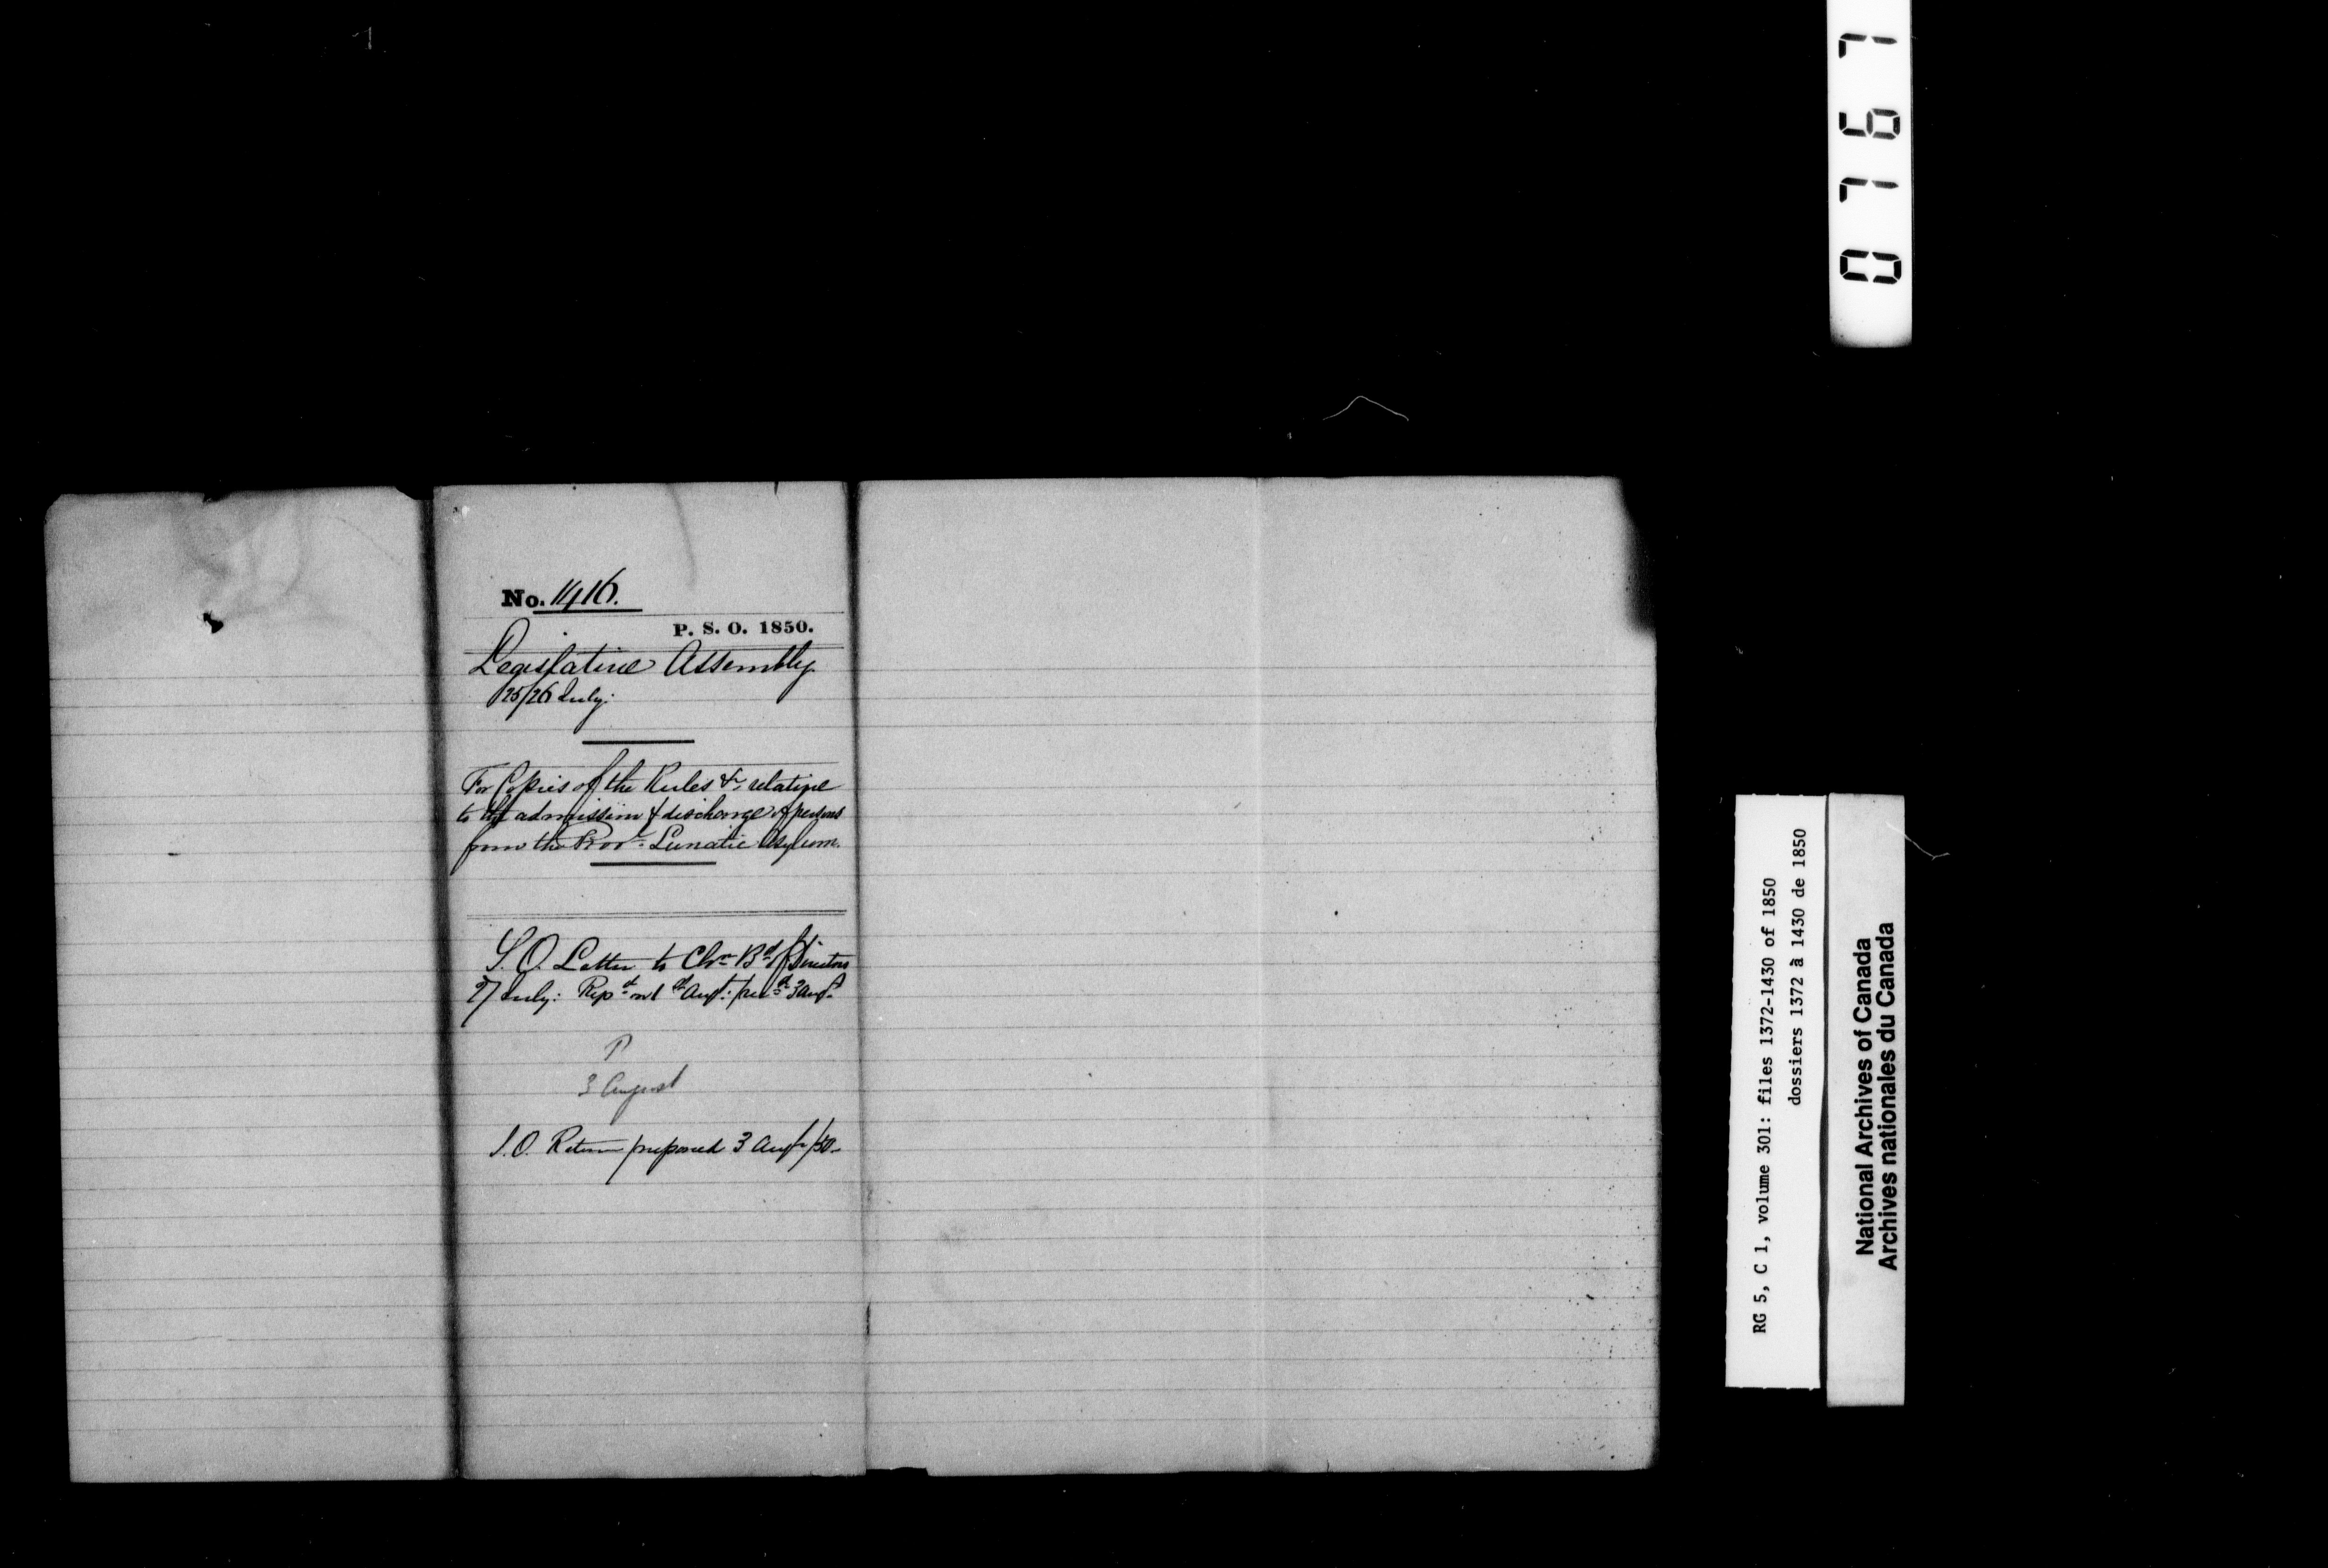 No. 1416.
P. S. O. 1850.
Legislative Assembly
25/26 July:
For Copies of the Rules &c, relative
to the admission & discharge of persons
from the Provl. Lunatic Asylum.
S.O. Letter to Chn Bd of Directors
27 July: Repd Augt: recd 3 Augt
P
3 August
S.O. Return prepared 3 Augt /50-
0767
RG 5, C 1, volume 301: files 1372-1430 of 1850
dossiers 1372 à 1430 de 1850
National Archives of Canada
Archives nationales du Canada